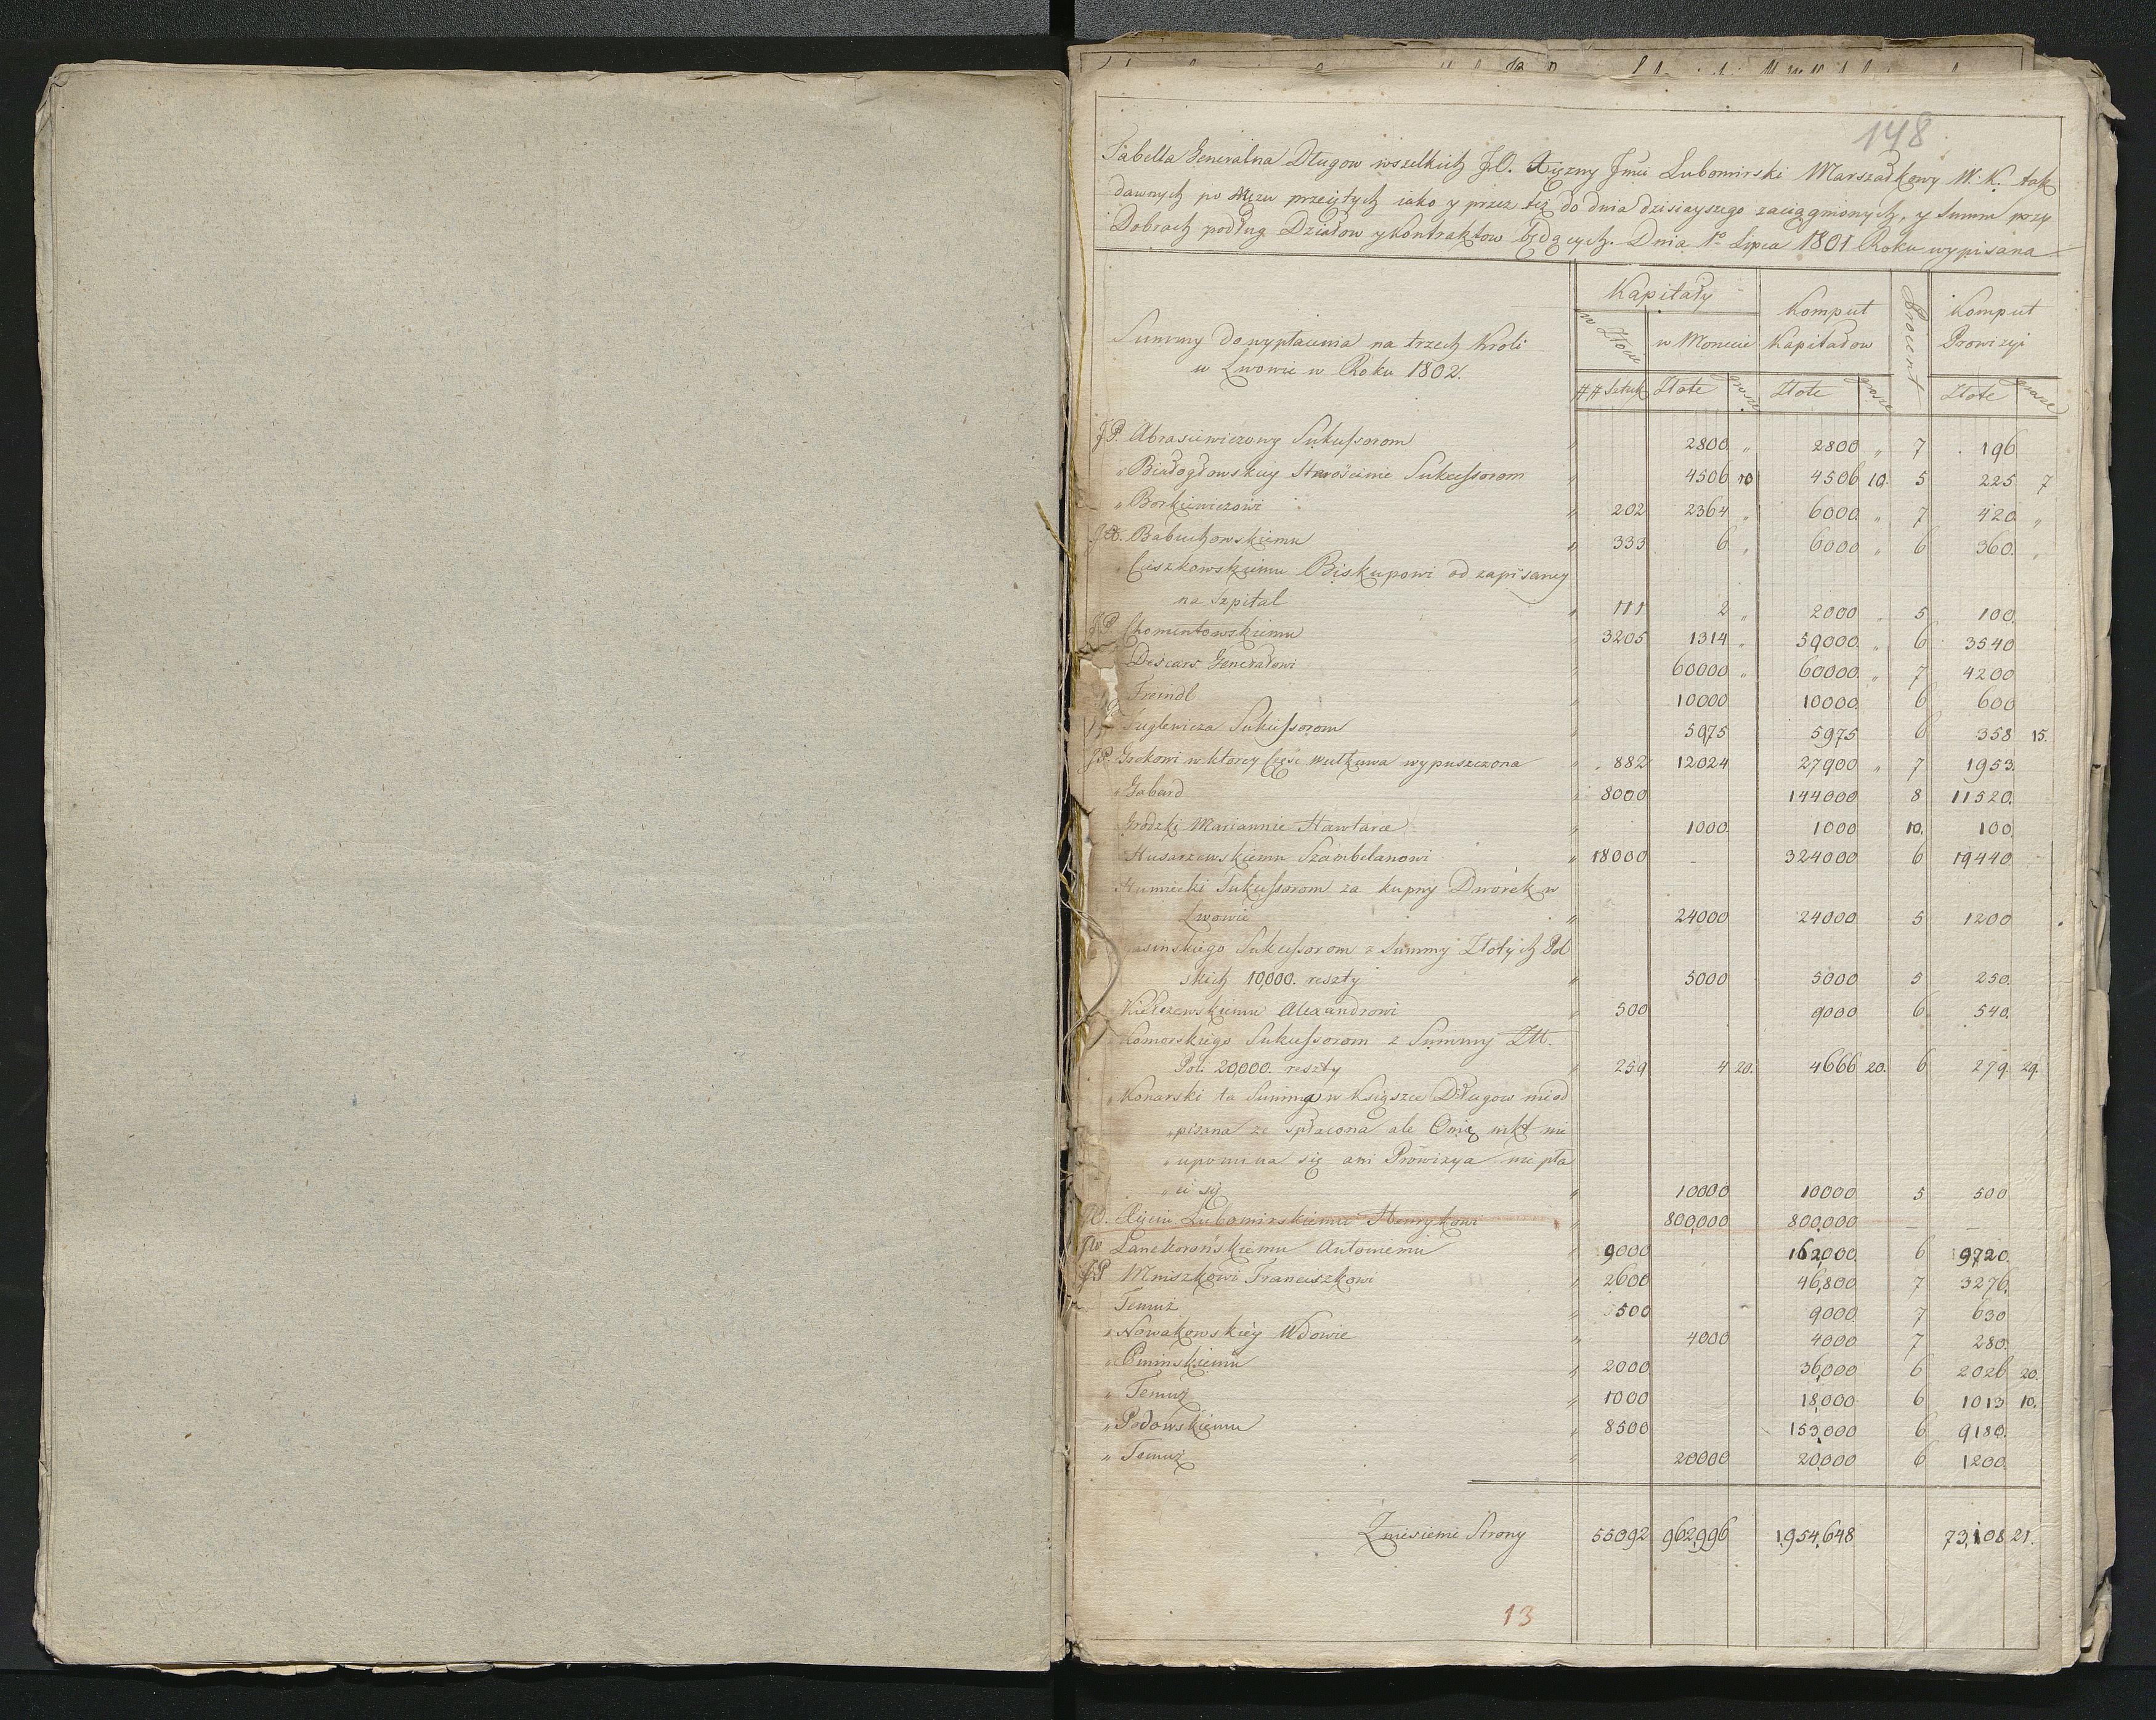 148
Tabella Generalna Długow wszelkich J.O. Xiężny Jmci Lubomirski Marszałkowy W. K. tak
dawnych po Mężu przeiętych iako y przez też do dnia dzisiayszego zaciągnionych, y Summ przy
Dobrach podług Działow y Kontraktow będących. Dnia 1º Lipca 1801 Roku wypisana
Summy do wypłacenia na trzech Kroli
w Lwowie w Roku 1802.
Kapitały
w Złocie
w Monecie
Komput
Kapitałow
Procent
Komput
Prowizyi
## Sztuk Złote grosze Złote grosze Złote grosze
J.P. Abrasewiczowy Sukcessorom " 2800 " 2800 " 7 196
" Białogłowskiey Starościnie Sukcessorom " 4506 10 4506 10 5 225 7
" Borkiewiczowi " 202 2364 " 6000 " 7 420 "
JX. Babuchowskiemu " 333 6 " 6000 " 6 360 "
" Cieszkowskiemu Biskupowi od zapisaney
na Szpital " 111 2 " 2000 " 5 100
JP. Chomentowskiemu " 3205 1314 " 59000 " 6 3540
Descars Generałowi " 60000 " 60000 " 7 4200
Freindl " 10000 10000 6 600
Sukcessorom " 5975 5975 6 358 15.
J.P. Grekowi w ktorey wypuszczona " 882 12024 27900 " 7 1953.
" Gabard " 8000 144000 8 11520.
Grodzki Mariannie " 1000. 1000 10. 100.
Husarzewskiemu Szambelanowi " 18000 324000 6 19440
Humiecki Sukcessorom za kupny Dworek w
Lwowie " 24000 24000 5 1200
Jasinskiego Sukcessorom z Summy Złotych Pol
skich 10,000. reszty " 5000 5000 5 250.
Kiełczewskiemu Alexandrowi " 500 9000 6 540.
Komorskiego Sukcessorom z Summy Złł.
Pol. 20,000. reszty " 259 4 20. 4666 20. 6 279. 29.
" Konarski ta Summa w Xięszce Długow nie od
" pisana że spłacona ale Onię nikt nie
" upomina się ani Prowizya nie pła
" ci się " 10000 10000 5 500
JO. Xięciu Lubomirskiemu Henrykowi " 800,000 800,000 — —
JW Lanckorońskiemu Antoniemu " 9000 162,000. 6 9720.
J.P Mniszkowi Franciszkowi " 2600 46,800 7 3276.
Temuż " 500 9000 7 630
" Nowakowskiey Wdowie " 4000 4000 7 280.
" Ominskiemu " 2000 36,000 6 2026 20.
" Temuż " 1000 18,000 6 1013 10.
" Podowskiemu " 8500 153,000 6 9180.
" Temuż " 20000 20,000 6 1200.
Zniesienie Strony 55092 962,996 1,954,648 73,108 21.
13